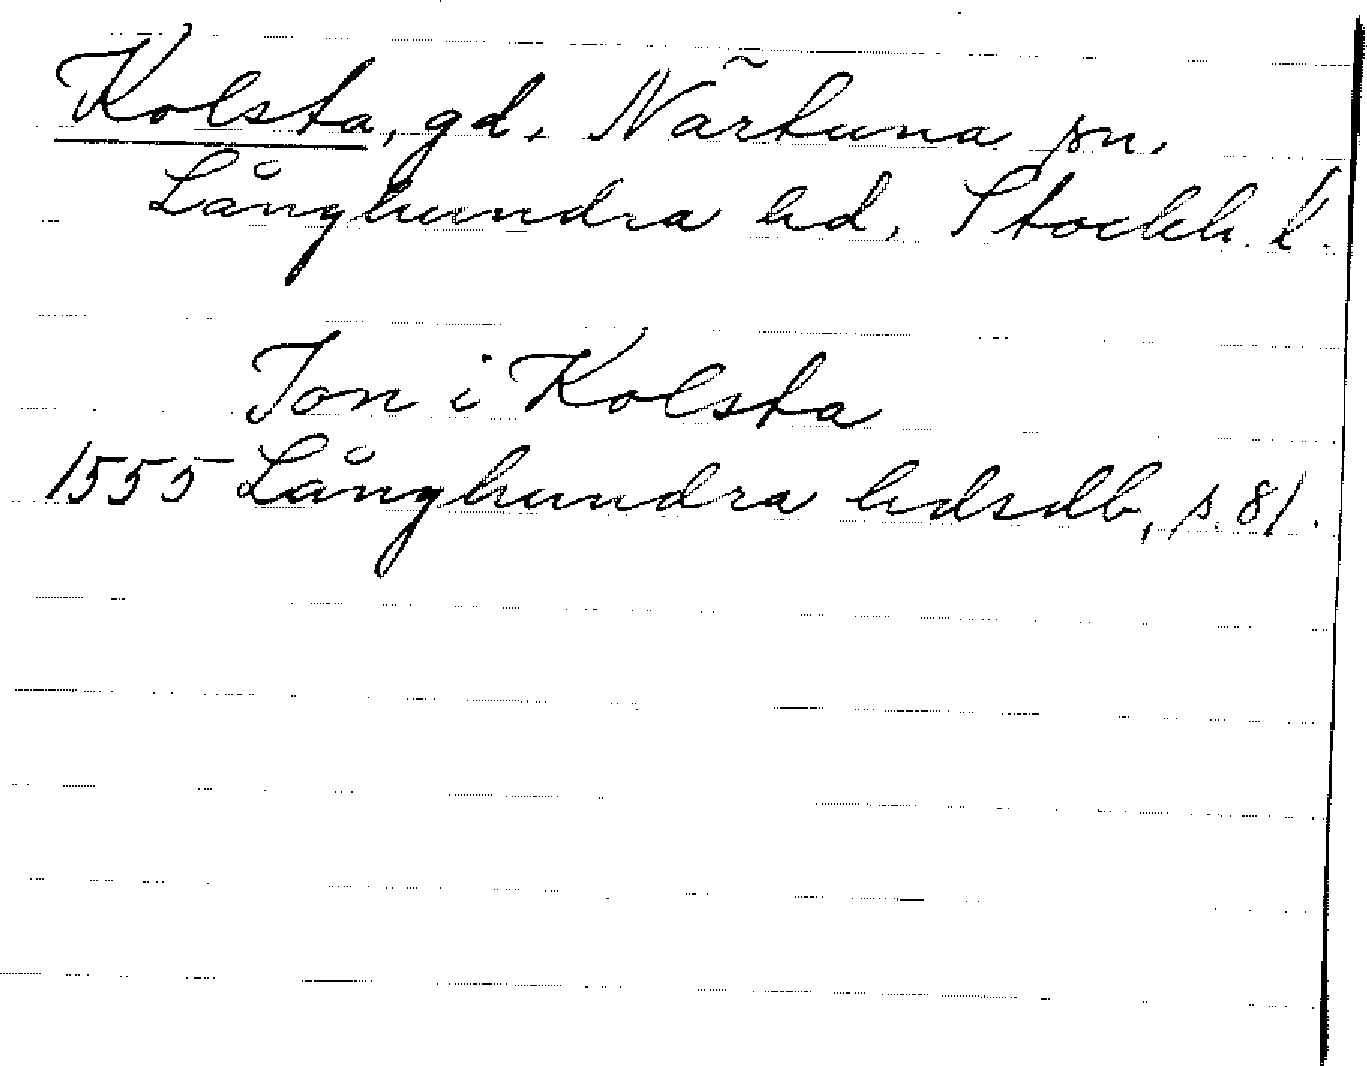 Kolsta, gd, Närtuna sn.
Långhundra hd, Stockh. l.
Jon i Kolsta
1555 Långhundra hdsdb, s. 81.